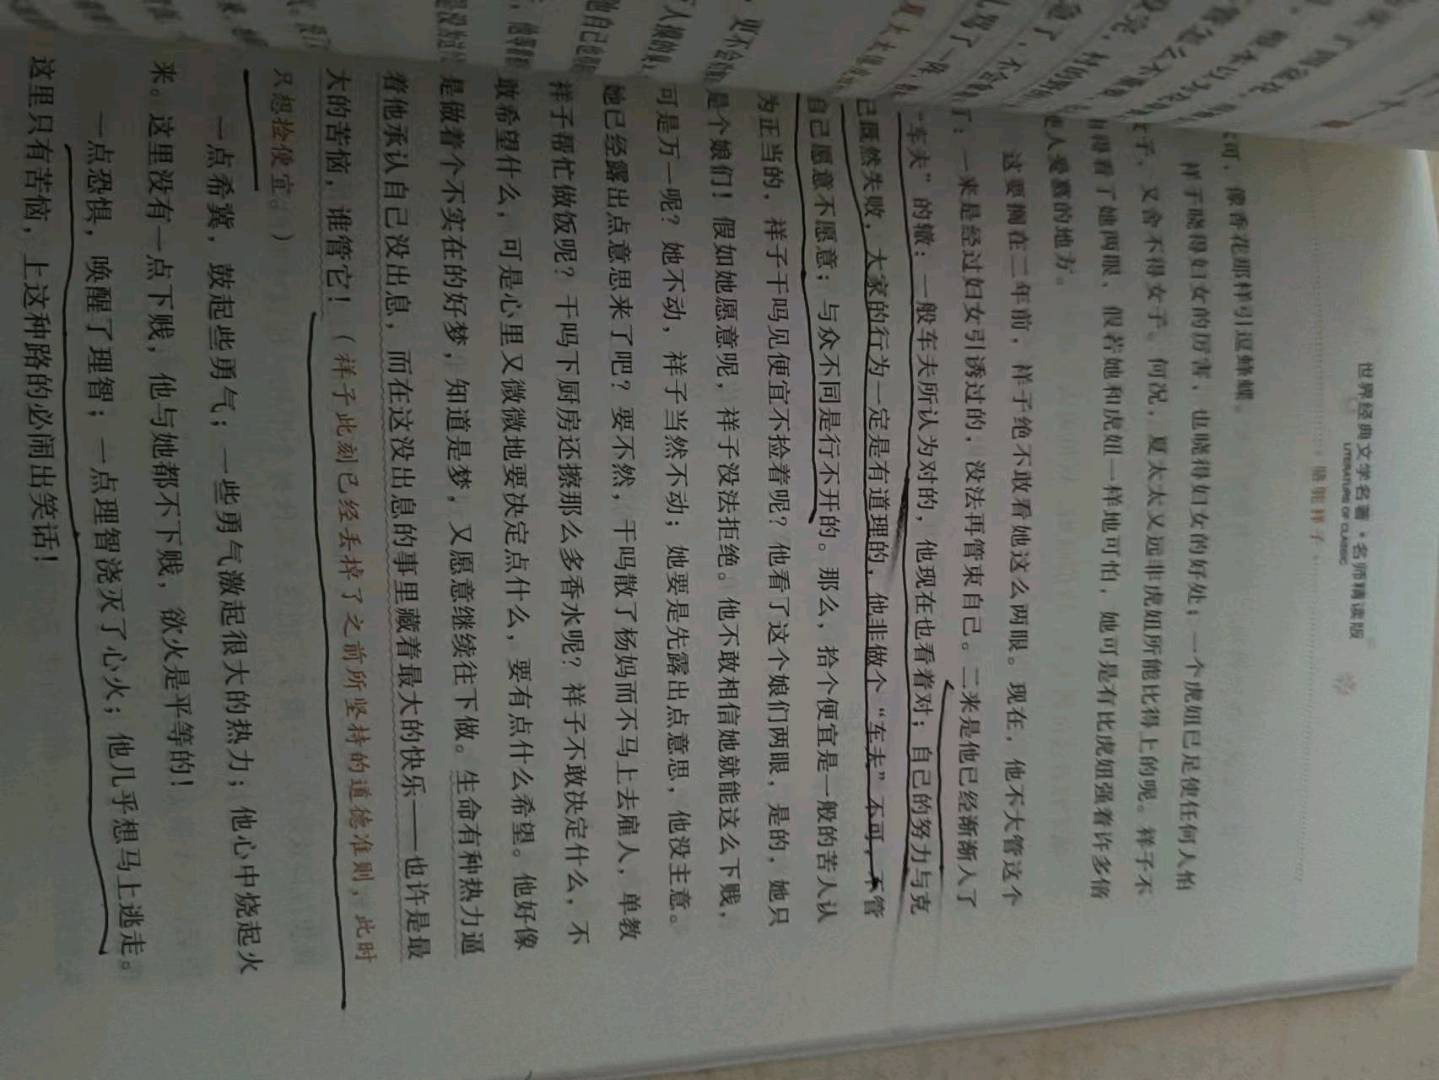 世界经典文学名著·名师精读版
LITERATURE OF CLASSIC
骆驼祥子
可，像香花那样引逗蜂蝶。
祥子晓得妇女的厉害，也晓得妇女的好处；一个虎妞已足使任何人怕
女子，又舍不得女子。何况，夏太太又远非虎妞所能比得上的呢。祥子不
由得看了她两眼，假若她和虎妞一样地可怕，她可是有比虎妞强着许多倍
人爱慕的地方。
这要搁在二年前，祥子绝不敢看她这么两眼。现在，他不大管这个
了：一来是经过妇女引诱过的，没法再管束自己。二来是他已经渐渐入了
“车夫”的辙：一般车夫所认为对的，他现在也看着对；自己的努力与克
己既然失败，大家的行为一定是有道理的，他非做个“车夫”不可，不管
自己愿意不愿意；与众不同是行不开的。那么，拾个便宜是一般的苦人认
为正当的，祥子干吗见便宜不捡着呢？他看了这个娘们两眼，是的，她只
是个娘们！假如她愿意呢，祥子没法拒绝。他不敢相信她就能这么下贱，
可是万一呢？她不动，祥子当然不动；她要是先露出点意思，他没主意。
她已经露出点意思来了吧？要不然，干吗散了杨妈而不马上去雇人，单教
祥子帮忙做饭呢？干吗下厨房还擦那么多香水呢？祥子不敢决定什么，不
敢希望什么，可是心里又微微地要决定点什么，要有点什么希望。他好像
是做着个不实在的好梦，知道是梦，又愿意继续往下做。生命有种热力逼
着他承认自己没出息，而在这没出息的事里藏着最大的快乐——也许是最
大的苦恼，谁管它！（祥子此刻已经丢掉了之前所坚持的道德准则，此时
只想捡便宜。）
一点希冀，鼓起些勇气；一些勇气激起很大的热力；他心中烧起火
来。这里没有一点下贱，他与她都不下贱，欲火是平等的！
一点恐惧，唤醒了理智；一点理智浇灭了心火；他几乎想马上逃走。
这里只有苦恼，上这种路的必闹出笑话！